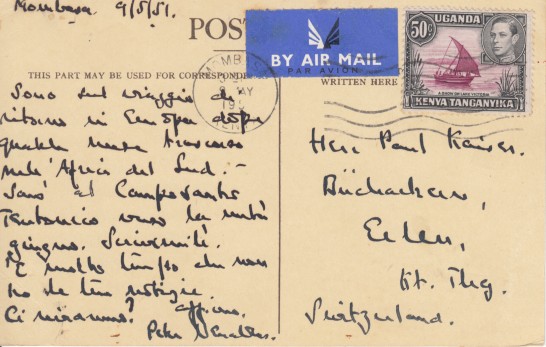 Mombasa 9/5/51.
POST
BY AIR MAIL
PAR AVION
THIS PART MAY BE USED FOR CORRESPONDE
WRITTEN HERE
UGANDA
50c
A DHOW ON LAKE VICTORIA
KENYA TANGANYIKA
MOMB
MY
Sono sul viaggio di
ritorno in Europa dopo
qualche mese trascorso
nell'Africa del Sud. -
Sarò al Camposanto
Teutonico verso la metà
giugno. Scrivimi.
È molto tempo che non
ho de tue notizie.
Ci vedremo? affmo.
Peter
Herr Paul Kaiser.
Eelen,
Kt. Thg.
Switzerland.